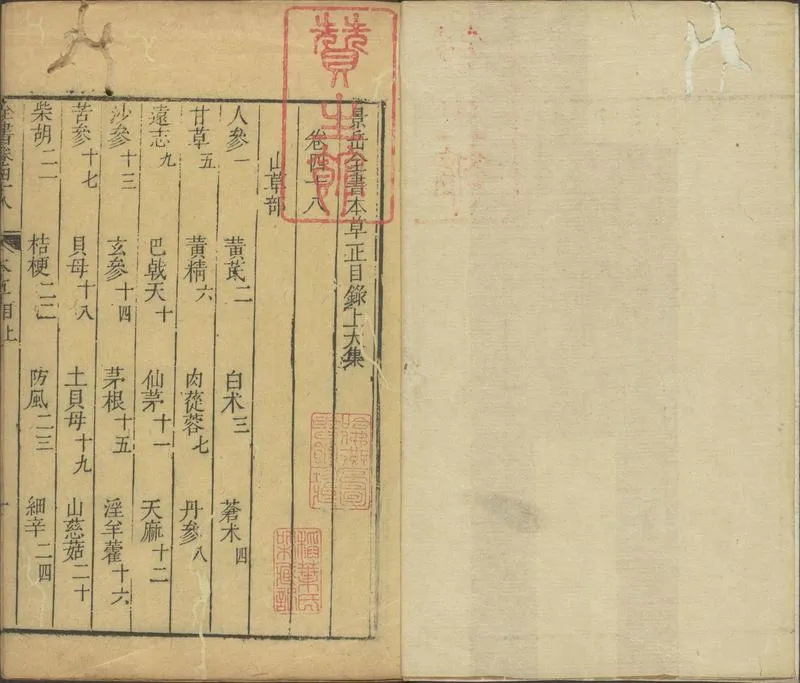 景岳全書本草正目錄上大集
卷四十八
山草部
人參一 黃芪二 白朮三 蒼朮四
甘草五 黃精六 肉蓯蓉七 丹參八
遠志九 巴戟天十 仙茅十一 天麻十二
沙參十三 玄參十四 茅根十五 淫羊藿十六
苦參十七 貝母十八 土貝母十九 山慈菇二十
柴胡二一 桔梗二二 防風二三 細辛二四
全書卷四十八 本草正目上 一
贊生館